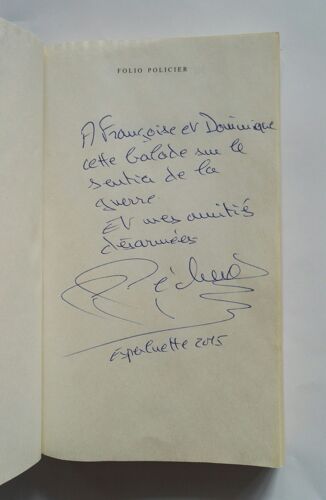 FOLIO POLICIER
A Françoise et Dominique
cette balade sur le
sentier de la
guerre
Et mes amitiés
désarmées
Pécherot
Esperluette 2015